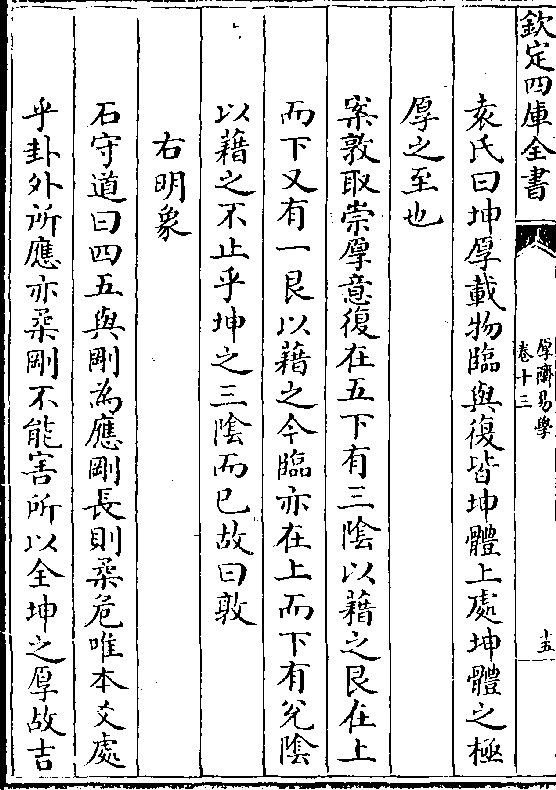 欽定四庫全書
厚齋易學
卷十三
十五
袁氏曰坤厚載物臨與復皆坤體上處坤體之極
厚之至也
案敦取崇厚意復在五下有三陰以藉之艮在上
而下又有一艮以藉之今臨亦在上而下有兊陰
以藉之不止乎坤之三陰而已故曰敦
右明象
石守道曰四五與剛為應剛長則柔危唯本爻處
乎卦外所應亦柔剛不能害所以全坤之厚故吉